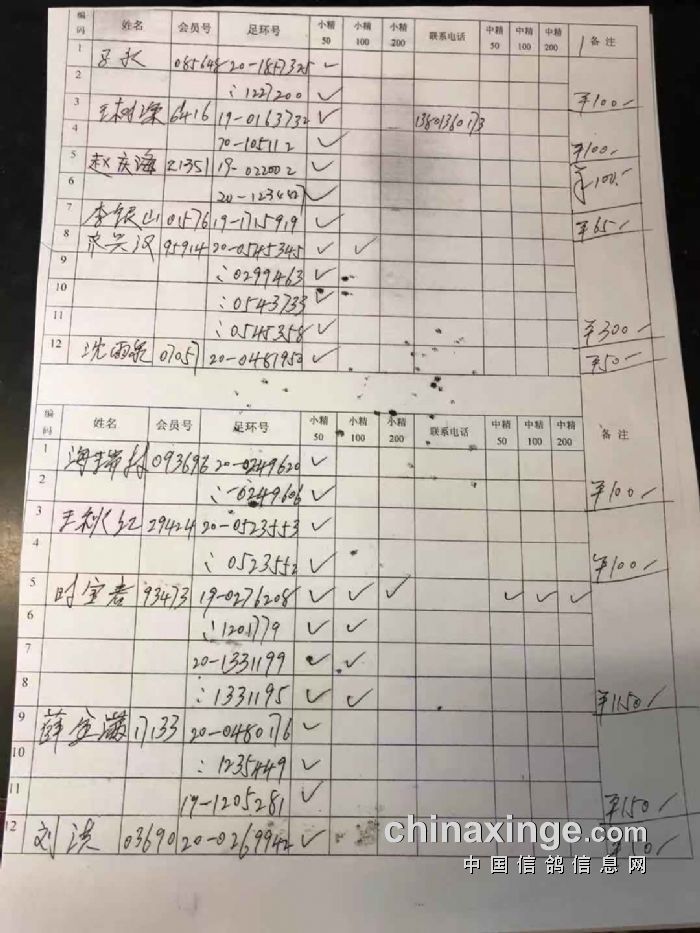 编码 姓名 会员号 足环号 小精50 小精100 小精200 联系电话 中精50 中精100 中精200 备注
1 085648 20-1817325 ✓
2 :1227200 ✓ ¥100-
3 王树深 6416 19-0163732 ✓ 13801360173
4 20-105112 ✓ ¥100-
5 赵庆海 21351 19-022002 ✓ ¥100-
6 20-123447 ✓
7 李银山 01576 19-1715919 ✓ ¥65-
8 兴汉 95914 20-0545345 ✓ ✓
9 :0299463 ✓
10 :0543733 ✓
11 :0545358 ✓ ¥300-
12 沈雨泉 07057 20-0481950 ✓ ¥50-
编码 姓名 会员号 足环号 小精50 小精100 小精200 联系电话 中精50 中精100 中精200 备注
1 093696 20-0249620 ✓
2 :-0249606 ✓ ¥100-
3 王秋红 29424 20-0523553 ✓
4 :0523552 ✓ ¥100-
5 时宝君 93473 19-0276208 ✓ ✓ ✓ ✓ ✓ ✓
6 :1201779 ✓ ✓
7 20-1331199 ✓ ✓
8 :1331195 ✓ ✓ ¥1150-
9 薛金 17133 20-0480176 ✓
10 :1235449 ✓
11 19-1205281 ✓ ¥150-
12 刘洪 03690 20-0269942 ✓
chinaxinge.com
中国信鸽信息网